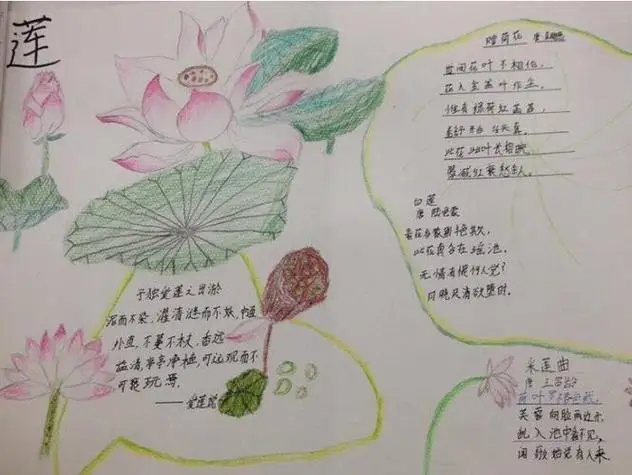 莲
赠荷花 唐 李商隐
世间花叶不相伦,
花入金盆叶作尘.
惟有绿荷红菡萏,
卷舒开合任天真.
此花此叶长相映,
翠减红衰愁杀人.
白莲
唐 陆龟蒙
素花多蒙别艳欺,
此花真合在瑶池.
无情有恨何人觉?
月晓风清欲堕时.
于独爱莲之出淤
泥而不染,濯清涟而不妖,中通
外直,不蔓不枝,香远
益清,亭亭净植,可远观而不
可亵玩焉.
——爱莲说
采莲曲
唐 王昌龄
荷叶罗裙一色裁,
芙蓉向脸两边开.
乱入池中看不见,
闻歌始觉有人来.